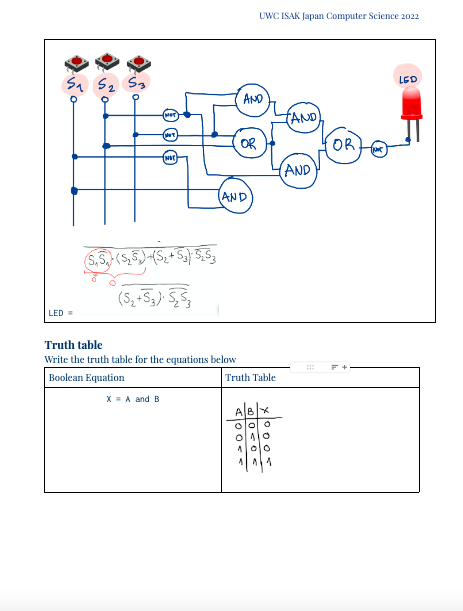 UWC ISAK Japan Computer Science 2022
S1 S2 S3
LED
NOT
NOT
NOT
AND
OR
AND
AND
AND
OR
NOT
S̅₁S₁·(S₂S̅₃)+(S₂+S̅₃)·S̅₂S̅₃
0 0
(S₂+S̅₃)·S̅₂S̅₃
LED =
Truth table
Write the truth table for the equations below
Boolean Equation Truth Table
X = A and B
A B X
0 0 0
0 1 0
1 0 0
1 1 1